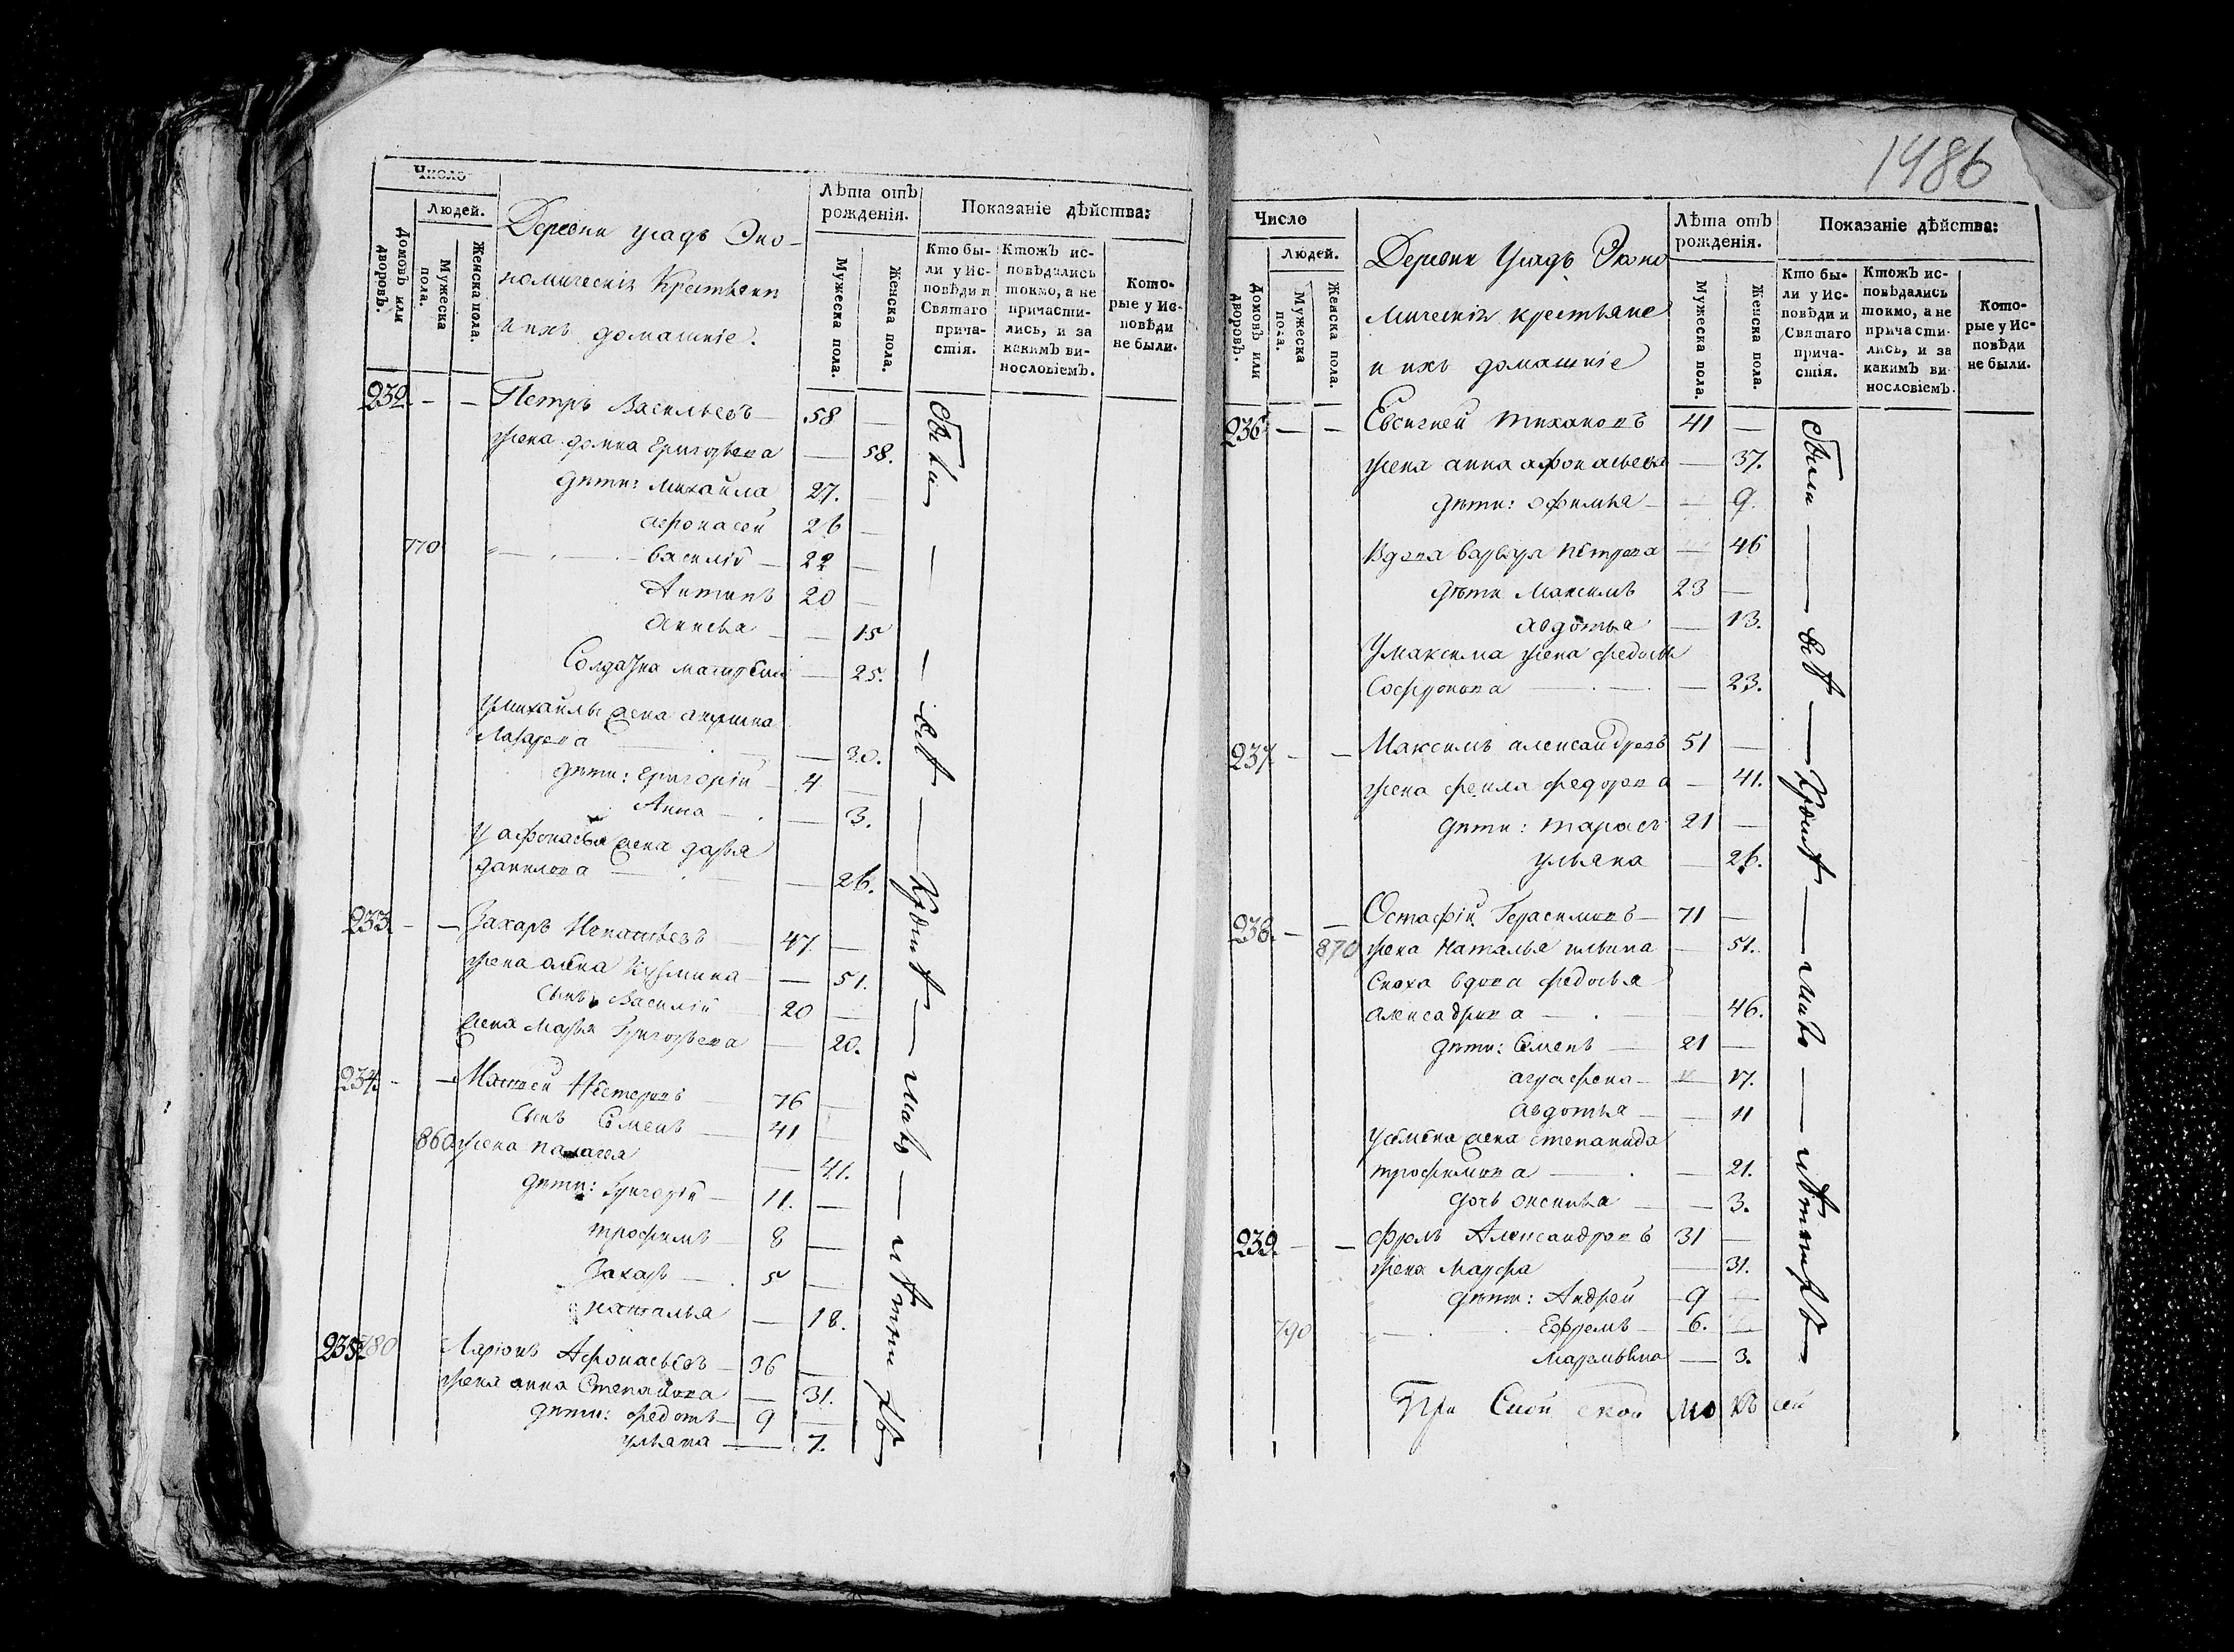 Число
Людей.
Домовъ или дворовъ.
Мужеска пола.
Женска пола.
Деревни усадъ Эко-
номическія Крестьяни
и ихъ домашніе:
Лѣта отъ рожденія.
Мужеска пола.
Женска пола.
Показаніе дѣйства:
Кто бы-
ли у Ис-
повѣди и
Святаго
прича-
стія.
Ктожъ ис-
повѣдались
токмо, а не
причасти-
лись, и за
какимъ ви-
нословіемъ.
Кото-
рые у Ис-
повѣди
не были.
232. — — Петръ Васильевъ — 58 —
жена домна Григорьева — 58.
дѣти: михайла 27. —
афонасей 26 —
770 василій — 22 —
Антипъ 20 —
Анисья — 15
Солдатка — 25.
у михайлы жена акулина
Лазарева — 30.
дѣти: григорій — 4 —
Анна — 3.
у афонасья жена дарья
данилова — 26.
233. — — Захаръ Игнатьевъ — 47 —
жена алена Кузмина — 51.
сынъ Василій 20 —
жена Марья Григорьева — 20.
234. — — Матвей Нестеровъ — 76 —
сынъ Семенъ — 41 —
860 жена палагея — 41.
дѣти: Григорій — 11. —
трофимъ — 8 —
Захаръ — 5 —
наталья — 18.
235. 780 Ларіонъ Афонасьевъ — 36 —
жена анна Степанова — 31.
дѣти: федотъ — 9 —
ульяна — 7.
были — всѣ —
1486
Число
Людей.
Домовъ или дворовъ.
Мужеска пола.
Женска пола.
Деревни Усадъ Эконо
мическія крестьяне
и ихъ домашніе
Лѣта отъ рожденія.
Мужеска пола.
Женска пола.
Показаніе дѣйства:
Кто бы-
ли у Ис-
повѣди и
Святаго
прича-
стія.
Ктожъ ис-
повѣдались
токмо, а не
причасти-
лись, и за
какимъ ви-
нословіемъ.
Кото-
рые у Ис-
повѣди
не были.
236. — — Евсигней тихановъ 41 —
жена анна афонасьева — 37.
дѣти: офимья — 9.
Вдова варвара петрова — 46
дѣти Максимъ 23 —
авдотья — 13.
У максима жена федосья
Софронова — 23.
237. — — Максимъ александровъ 51 —
жена фекла федорова — 41.
дѣти: тарасъ 21 —
ульяна — 26.
238. — — Остафій Герасимовъ — 71 —
870 жена Наталья ильина — 51.
сноха вдова федосья
алексадрова — 46.
дѣти: Семенъ — 21 —
аграфена — 17.
авдотья — 11
у семена жена степанида
трофимова — 21.
дочь оксинья — 3.
239. — — фролъ Александровъ 31 —
жена Марфа — 31.
дѣти: Андрей — 9 —
790 Ефремъ — 6. —
Маремьяна — 3.
были — всѣ —
При